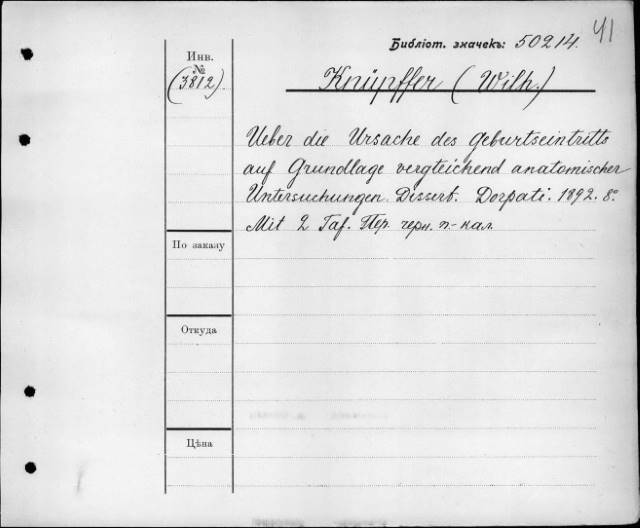 41
Библіот. значекъ: 50214.
Инв.
№
(3812)
Knüpffer (Wilh.)
Ueber die Ursache des Geburtseintritts
auf Grundlage vergleichend anatomischer
Untersuchungen. Dissert. Dorpati. 1892. 8º
Mit 2 Taf. Пер. черн. п.-кал.
По заказу
Откуда
Цѣна